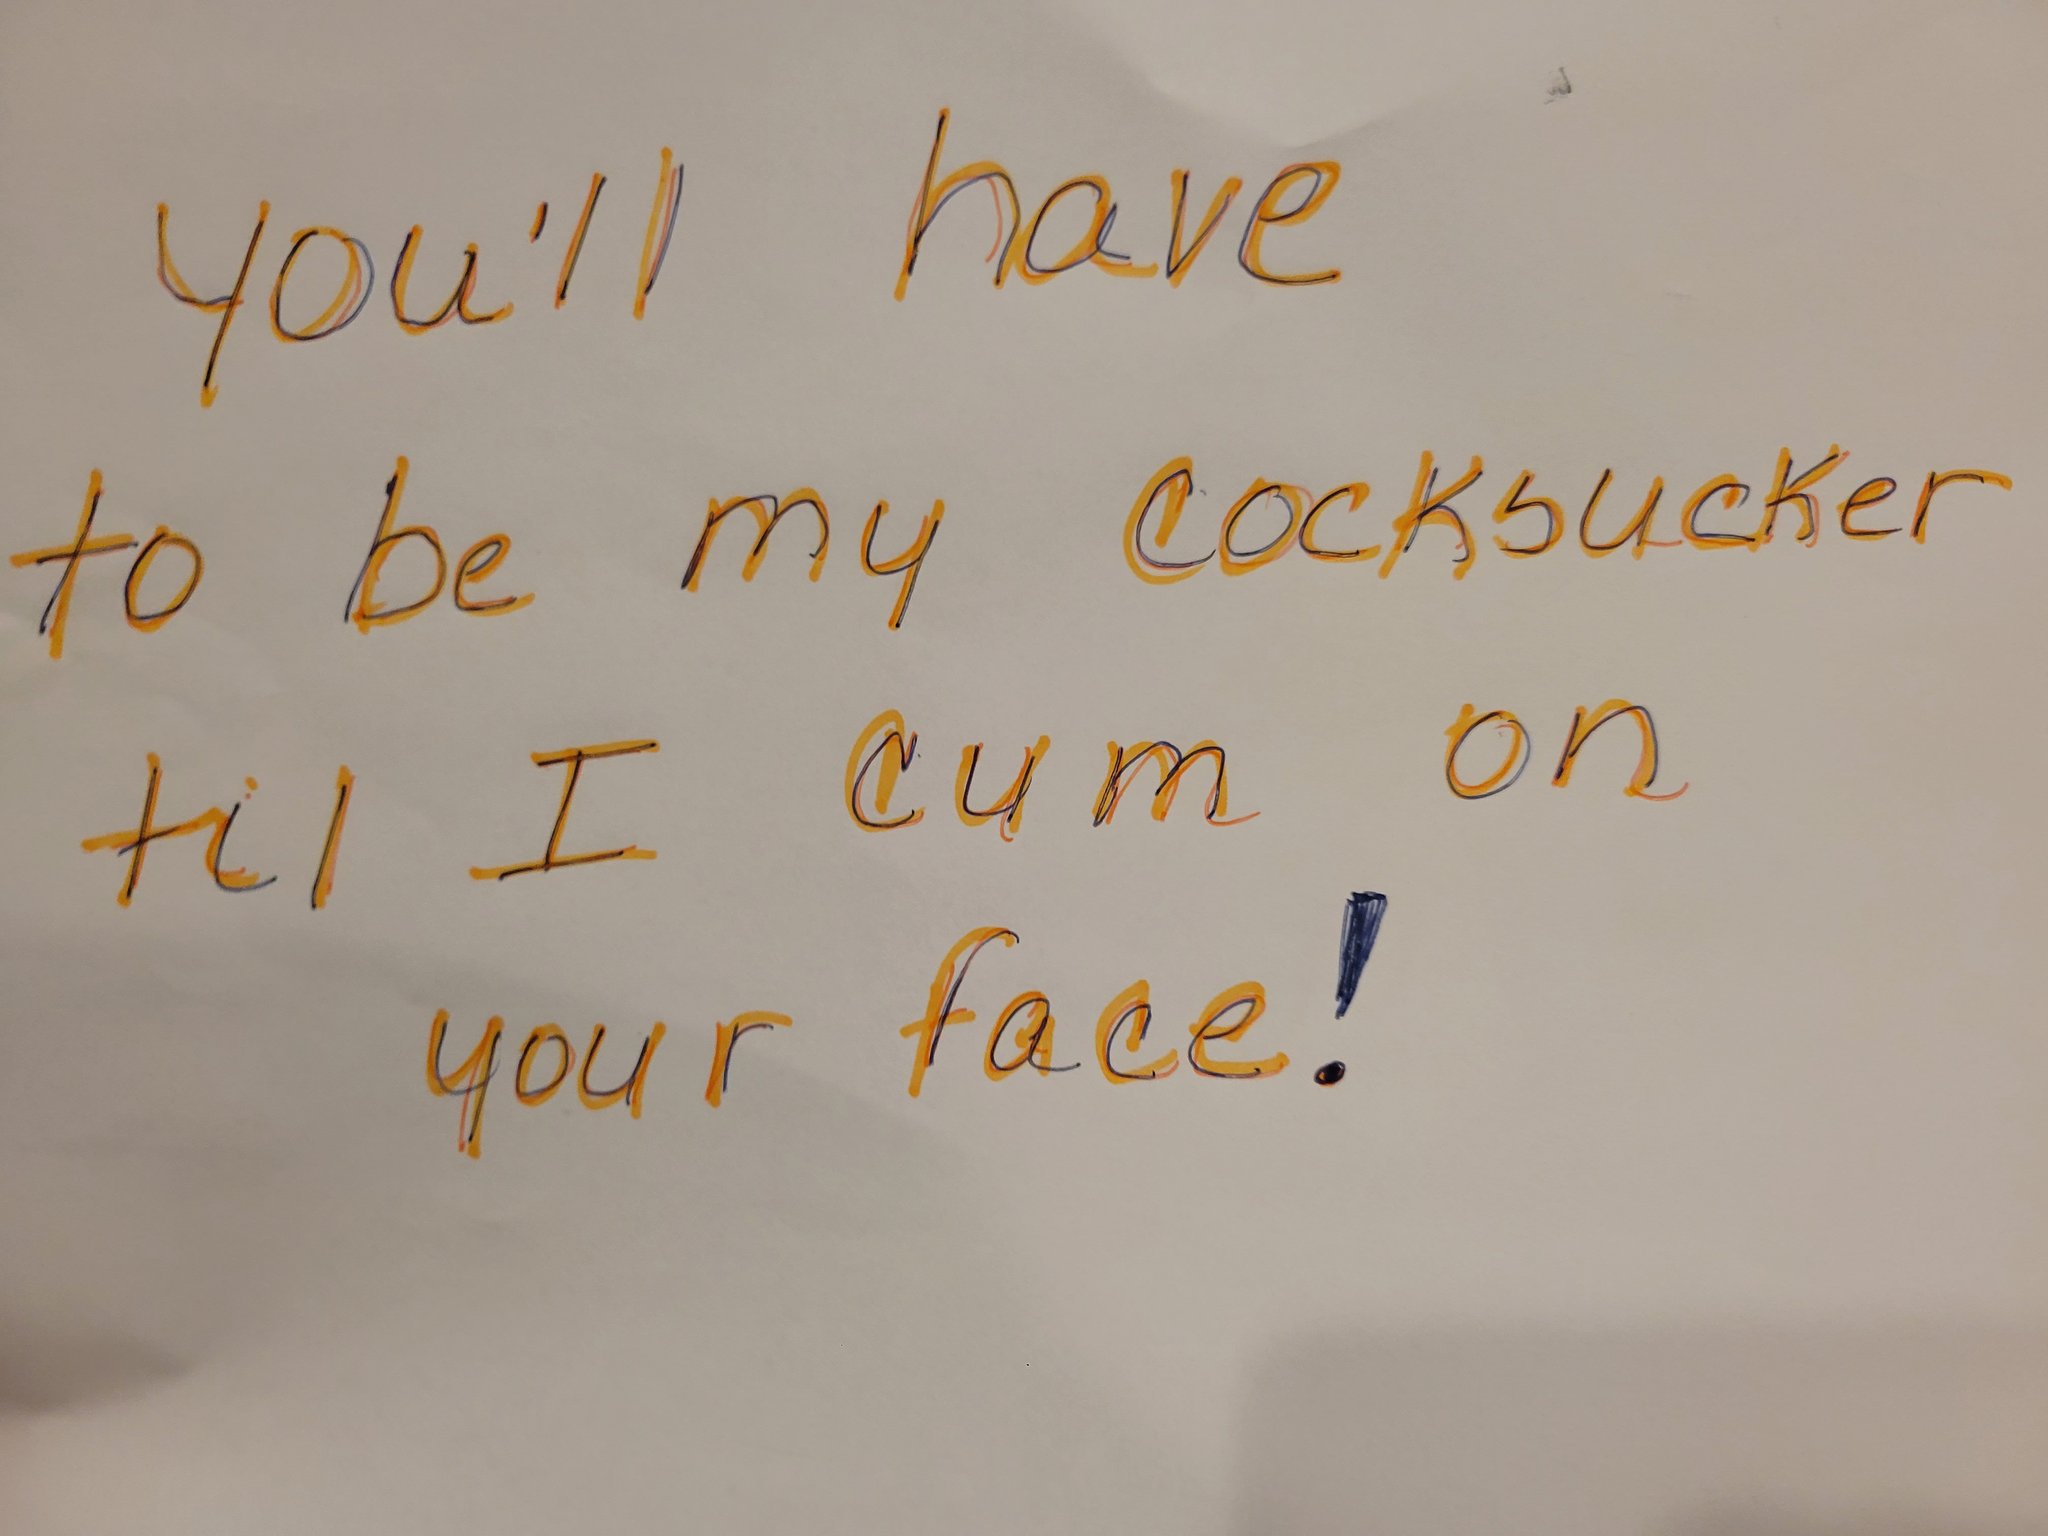 you'll have
to be my cocksucker
til I cum on
your face!